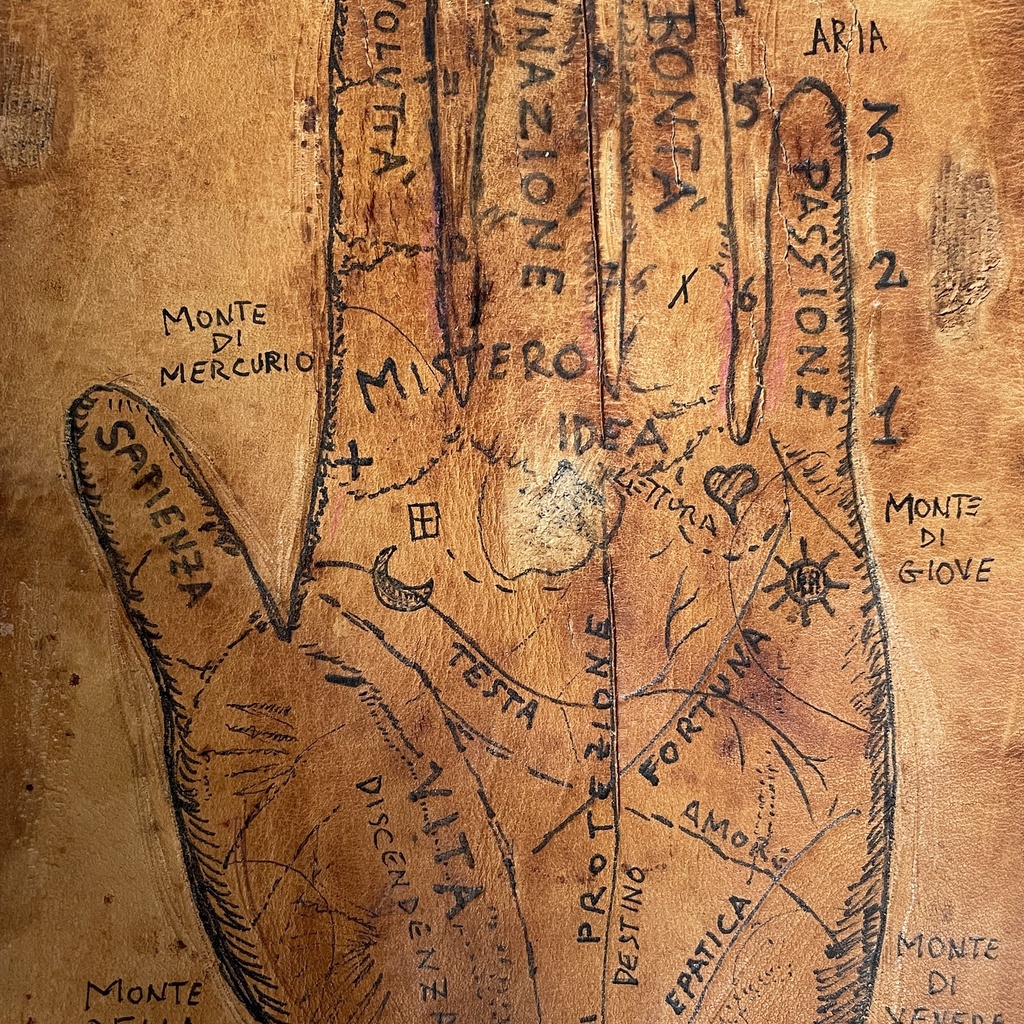 ARIA
VOLUTTA'
INAZIONE
BONTA'
5
3
PASSIONE
2
6
1
MONTE
DI
MERCURIO
MISTERO
IDEA
SAPIENZA
LETTURA
MONTE
DI
GIOVE
TESTA
FORTUNA
PROTEZIONE
VITA
DISCENDENZA
AMORE
DESTINO
EPATICA
MONTE
DELLA
MONTE
DI
VENERE